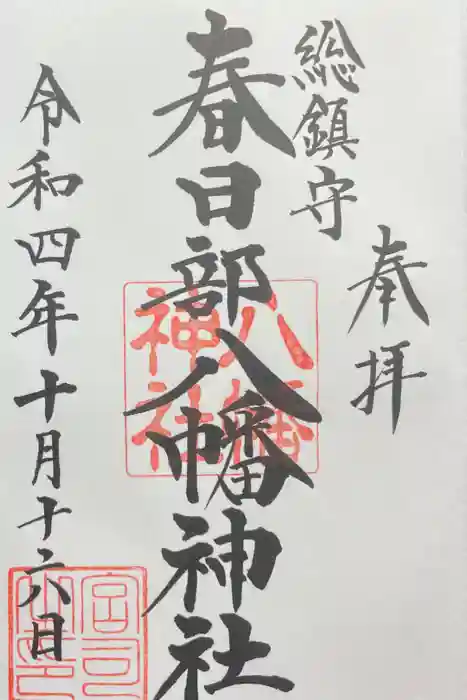 奉拝
総鎮守
春日部八幡神社
令和四年十月十六日
八幡
神社
宮司
之印